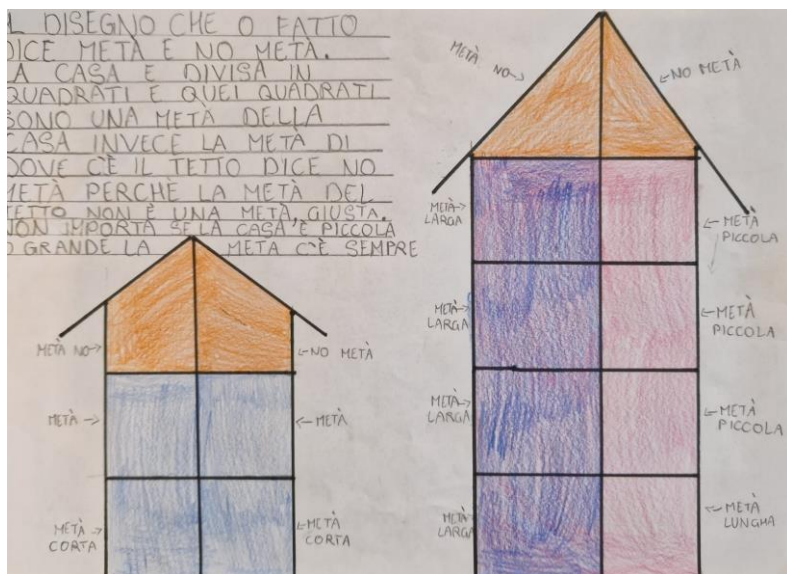 L DISEGNO CHE O FATTO
DICE METÀ E NO METÀ.
LA CASA E DIVISA IN
QUADRATI E QUEI QUADRATI
SONO UNA METÀ DELLA
CASA INVECE LA METÀ DI
DOVE C'È IL TETTO DICE NO
METÀ PERCHÈ LA METÀ DEL
TETTO NON È UNA METÀ, GIUSTA.
NON IMPORTA SE LA CASA È PICCOLA
O GRANDE LA METÀ C'È SEMPRE
METÀ NO
NO METÀ
METÀ
METÀ
METÀ
CORTA
METÀ
CORTA
METÀ NO
NO METÀ
METÀ
LARGA
METÀ
PICCOLA
METÀ
LARGA
METÀ
PICCOLA
METÀ
LARGA
METÀ
PICCOLA
METÀ
LARGA
METÀ
LUNGHA